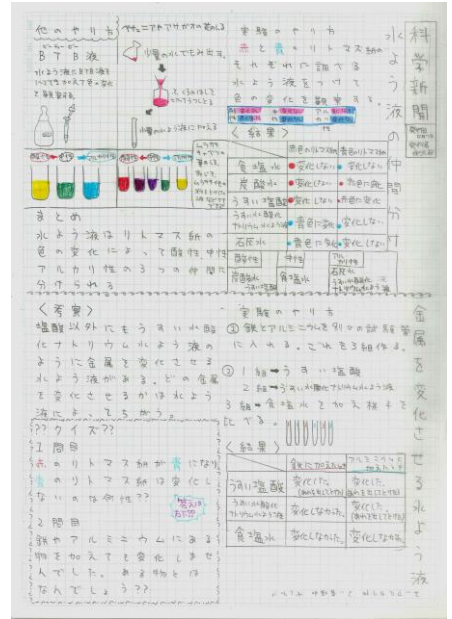 科学新聞
水よう液の仲間分け
実験のやり方
赤と青のリトマス紙の
それぞれに調べる
水よう液をつけて
色の変化を観察する。
<結果>
赤色のリトマス紙 青色のリトマス紙
食塩水 変化しない 変化しない
炭酸水 変化しない 赤色に変化
うすい塩酸 変化しない 赤色に変化
うすい水酸化ナトリウム水よう液 青色に変化 変化しない
石灰水 青色に変化 変化しない
酸性 中性 アルカリ性
炭酸水 うすい塩酸 食塩水 石灰水 うすい水酸化ナトリウム水よう液
他のやり方
BTB液
少量の水でもみ出す。
まとめ
水よう液はリトマス紙の
色の変化によって酸性中性
アルカリ性の3つの仲間に
分けられる
金属を変化させる水よう液
実験のやり方
①鉄とアルミニウムを別々の試験管
に入れる。これを3組作る。
②1組➡うすい塩酸
2組➡うすい水酸化ナトリウム水よう液
3組➡食塩水を加え様子を
比べる。
<結果>
鉄に加えたとき アルミニウムに加えたとき
うすい塩酸 変化した。 変化した。
うすい水酸化ナトリウム水よう液 変化しなかった。 変化した。
食塩水 変化しなかった。 変化しなかった。
<考察>
塩酸以外にもうすい水酸
化ナトリウム水よう液の
ように金属を変化させる
水よう液がある。どの金属
を変化させるかは水よう
液によってちがう。
??クイズ??
1問目
赤のリトマス紙が青になり
青のリトマス紙は変化し
ないのは何性??
答えは右下
2問目
鉄やアルミニウムにある
物を加えても変化しませ
んでした。ある物とは
なんでしょう??